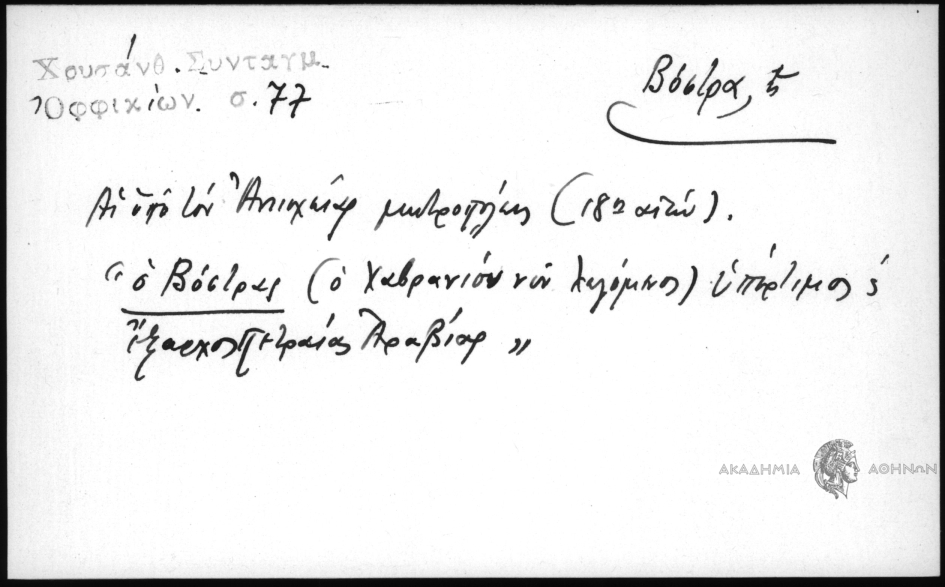 Χρυσάνθ. Συνταγμ.
Ὀφφικίων. σ. 77
Βόστρα, ἡ
Αἱ ὑπὸ τὸν Ἀντιοχείας μητροπόλεις (18ῃ αἰών).
"ὁ Βόστρας (ὁ Χαβρανίου νῦν λεγόμενος) ὑπέρτιμος ἑ
Ἔξαρχος Πετραίας Ἀραβίας"
ΑΚΑΔΗΜΙΑ ΑΘΗΝΩΝ